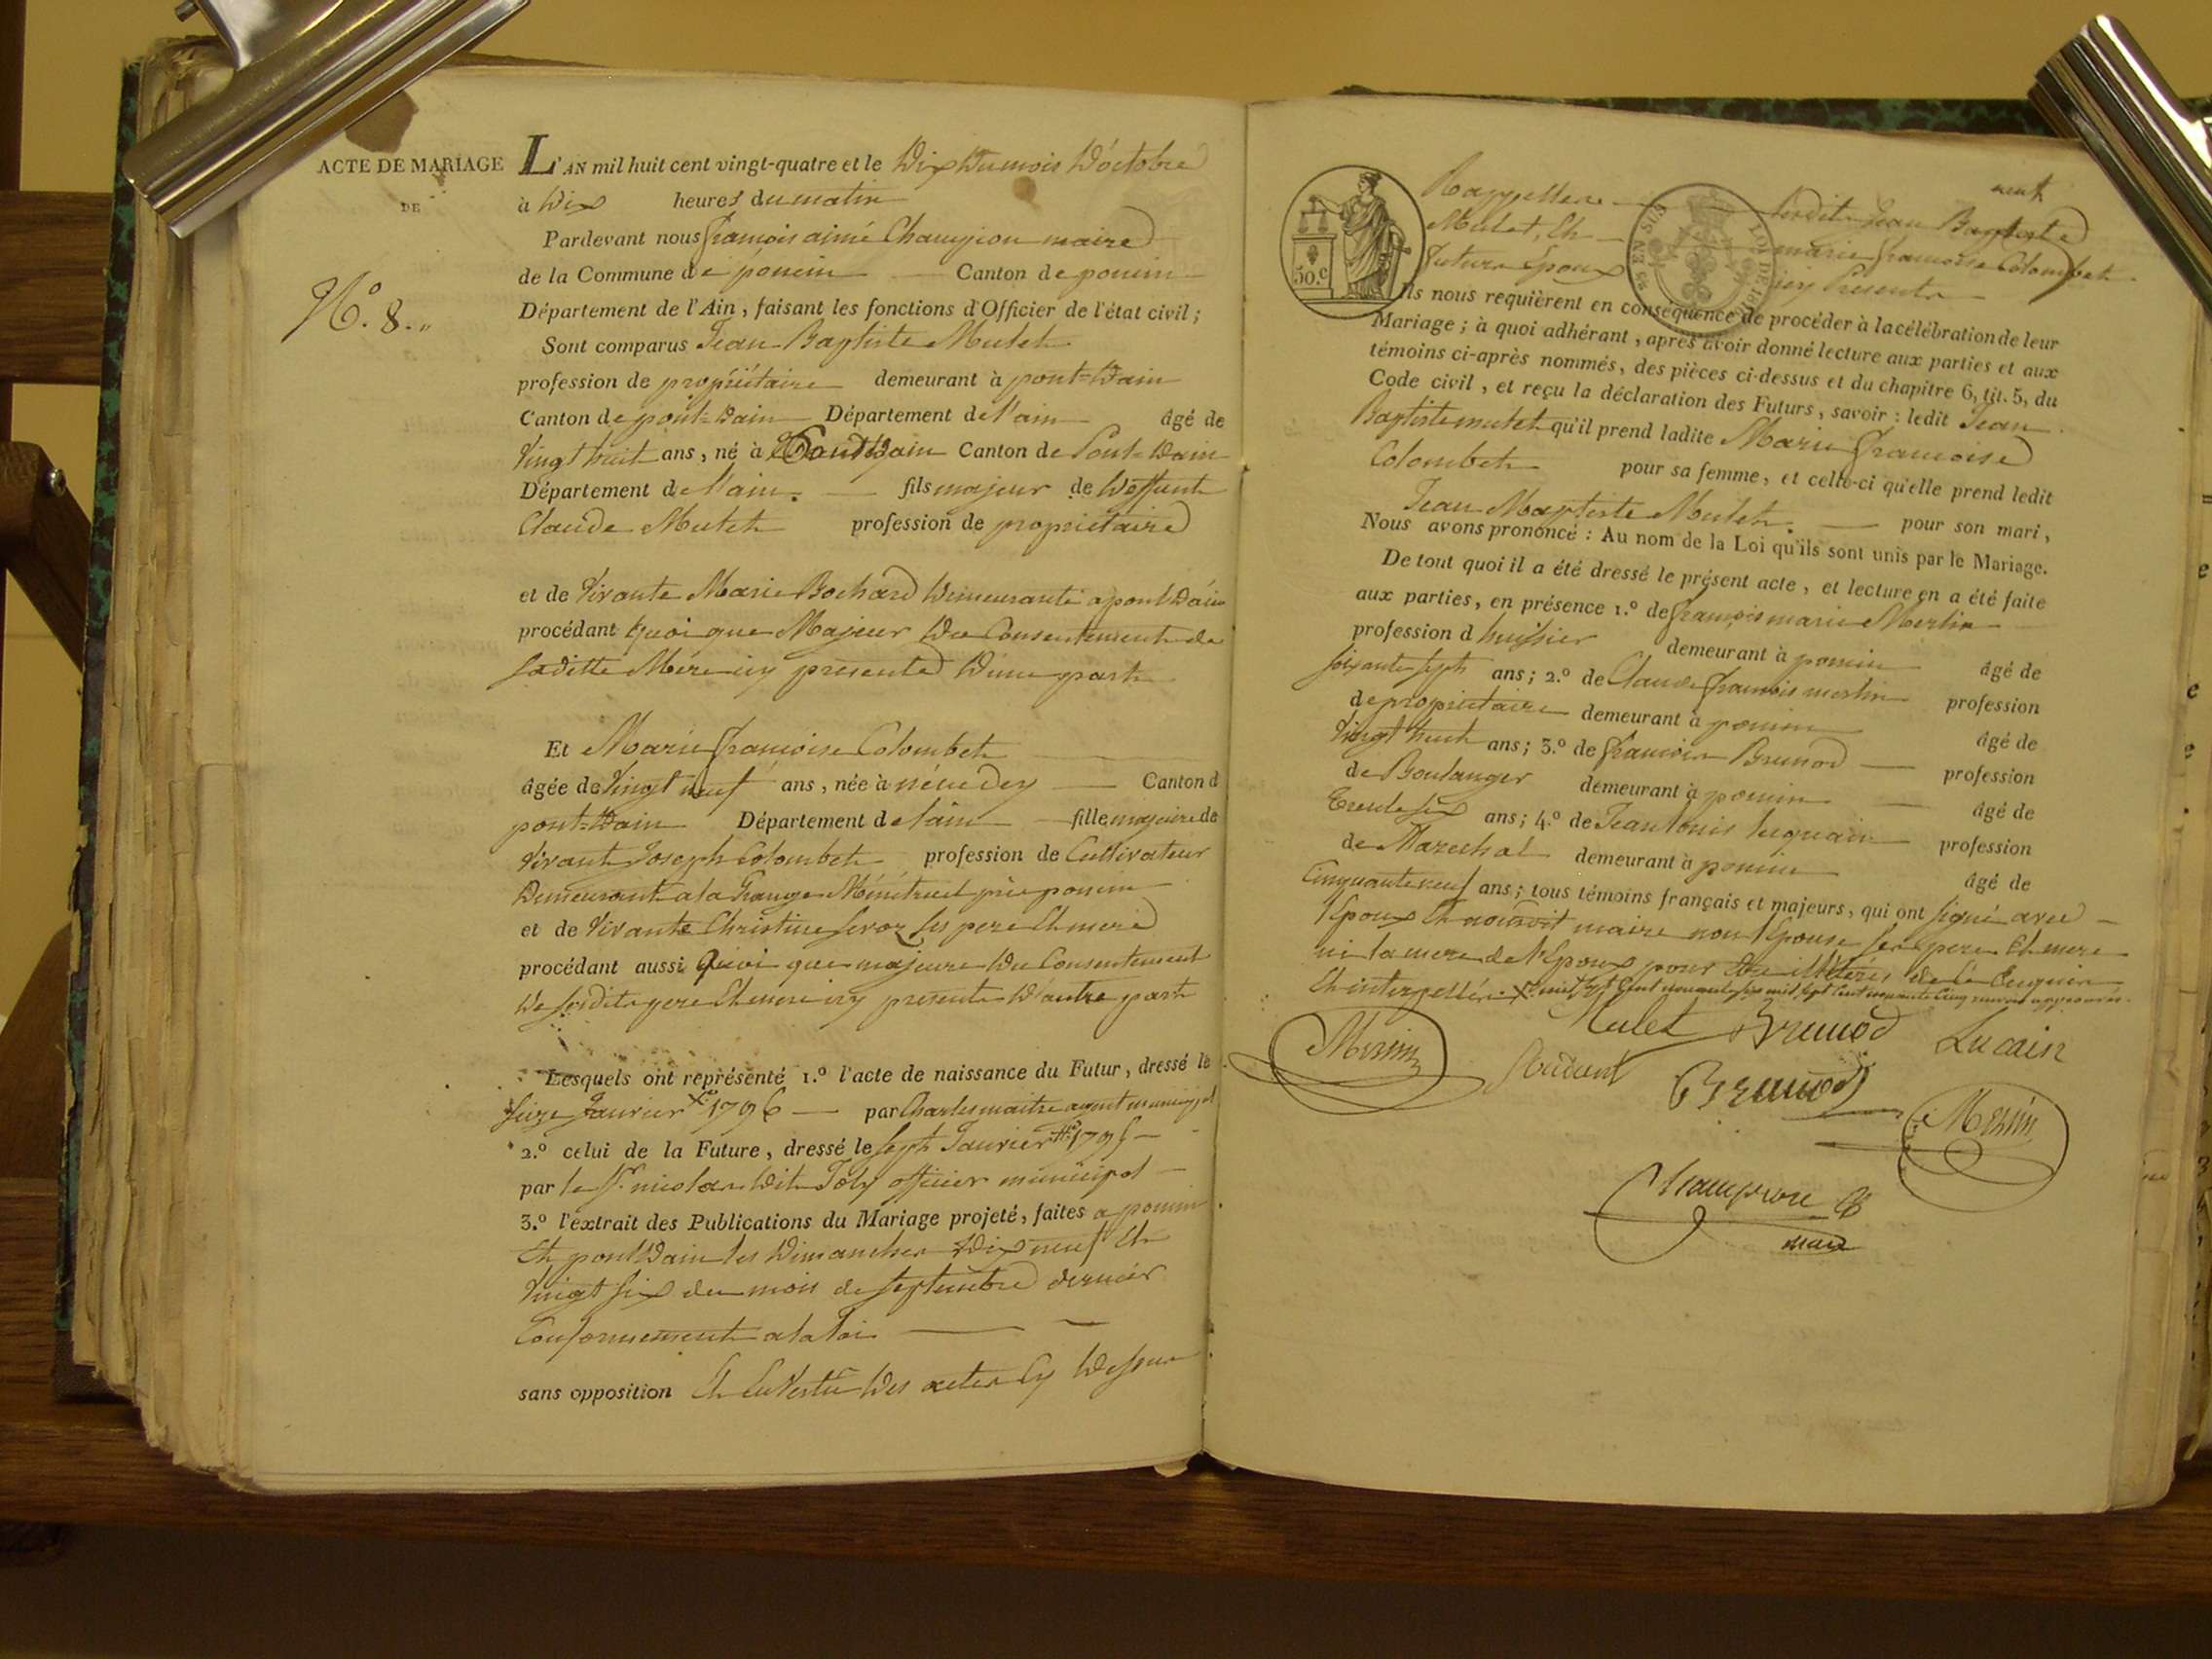 ACTE DE MARIAGE
DE
N.º 8.„
L'AN mil huit cent vingt-quatre et le Dix Du mois D'octobre
à Dix heures du matin
Pardevant nous françois aimé Champion maire
de la Commune de poncin Canton de poncin
Département de l'Ain, faisant les fonctions d'Officier de l'état civil;
Sont comparus Jean Baptiste Mulet
profession de propriétaire demeurant à pont-Dain
Canton de pont-Dain Département de l'ain âgé de
Vingt huit ans, né à Pont Dain Canton de Pont-Dain
Département de l'ain. fils majeur de Deffunt
Claude Mulet profession de propriétaire
et de Vivante Marie Bochard Demeurante a pont Dain
procédant quoi que Majeur Du Consentement de
saditte Mére icy presente D'une part
Et Marie françoise Colombet
âgée de Vingt neuf ans, née à Canton d
pont-Dain Département de l'ain fille majeure de
Vivant Joseph Colombet profession de Cultivateur
Demeurant a la Grange près poncin
et de Vivante Christine ses pere Et mere
procédant aussi Quoi que majeure Du Consentement
De sesdits pere Et mere icy presents D'autre part
Lesquels ont représenté 1.º l'acte de naissance du Futur, dressé le
seize Janvier X 1796 par Charles maitre agent municipal
2.º celui de la Future, dressé le sept Janvier # 1795
par le Sr. nicolas Dit Joly officier municipal
3.º l'extrait des Publications du Mariage projeté, faites a poncin
Et pont Dain les Dimanches Dix neuf Et
Vingt six du mois de septembre dernier
Conformement a la Loi
sans opposition Et En Vertu Des actes Cy Dessus
50.C
EN SUS
LOI DE 181
Rappellés lesdits Jean Baptiste
Mulet, Et marie françoise Colombet
futurs Epoux icy Presents
Ils nous requièrent en conséquence de procéder à la célébration de leur
Mariage; à quoi adhérant, après avoir donné lecture aux parties et aux
témoins ci-après nommés, des pièces ci-dessus et du chapitre 6, tit. 5, du
Code civil, et reçu la déclaration des Futurs, savoir: ledit Jean
Baptiste mulet qu'il prend ladite Marie françoise
Colombet pour sa femme, et celle-ci qu'elle prend ledit
Jean Baptiste Mulet. pour son mari,
Nous avons prononcé: Au nom de la Loi qu'ils sont unis par le Mariage.
De tout quoi il a été dressé le présent acte, et lecture en a été faite
aux parties, en présence 1.º de françois marie Merlin
profession d huissier demeurant à poncin âgé de
soixante sept ans; 2.º de Claude françois merlin profession
de propriétaire demeurant à poncin âgé de
Vingt huit ans; 3.º de françois Brunod profession
de Boulanger demeurant à poncin âgé de
Trente six ans; 4.º de Jean Louis profession
de Marechal demeurant à poncin âgé de
Cinquante neuf ans; tous témoins français et majeurs, qui ont signé avec
l'Epoux Et maire non l'Epouse ses pere Et mere
ni la mere de l'Epoux pour Etre illitérés de ce Enquis
Et interpellés. X mil sept Cent nonante six mil sept Cent nonante Cinq
Merlin Mulet Brunod Lucain
Brunod
Merlin
Champion
maire